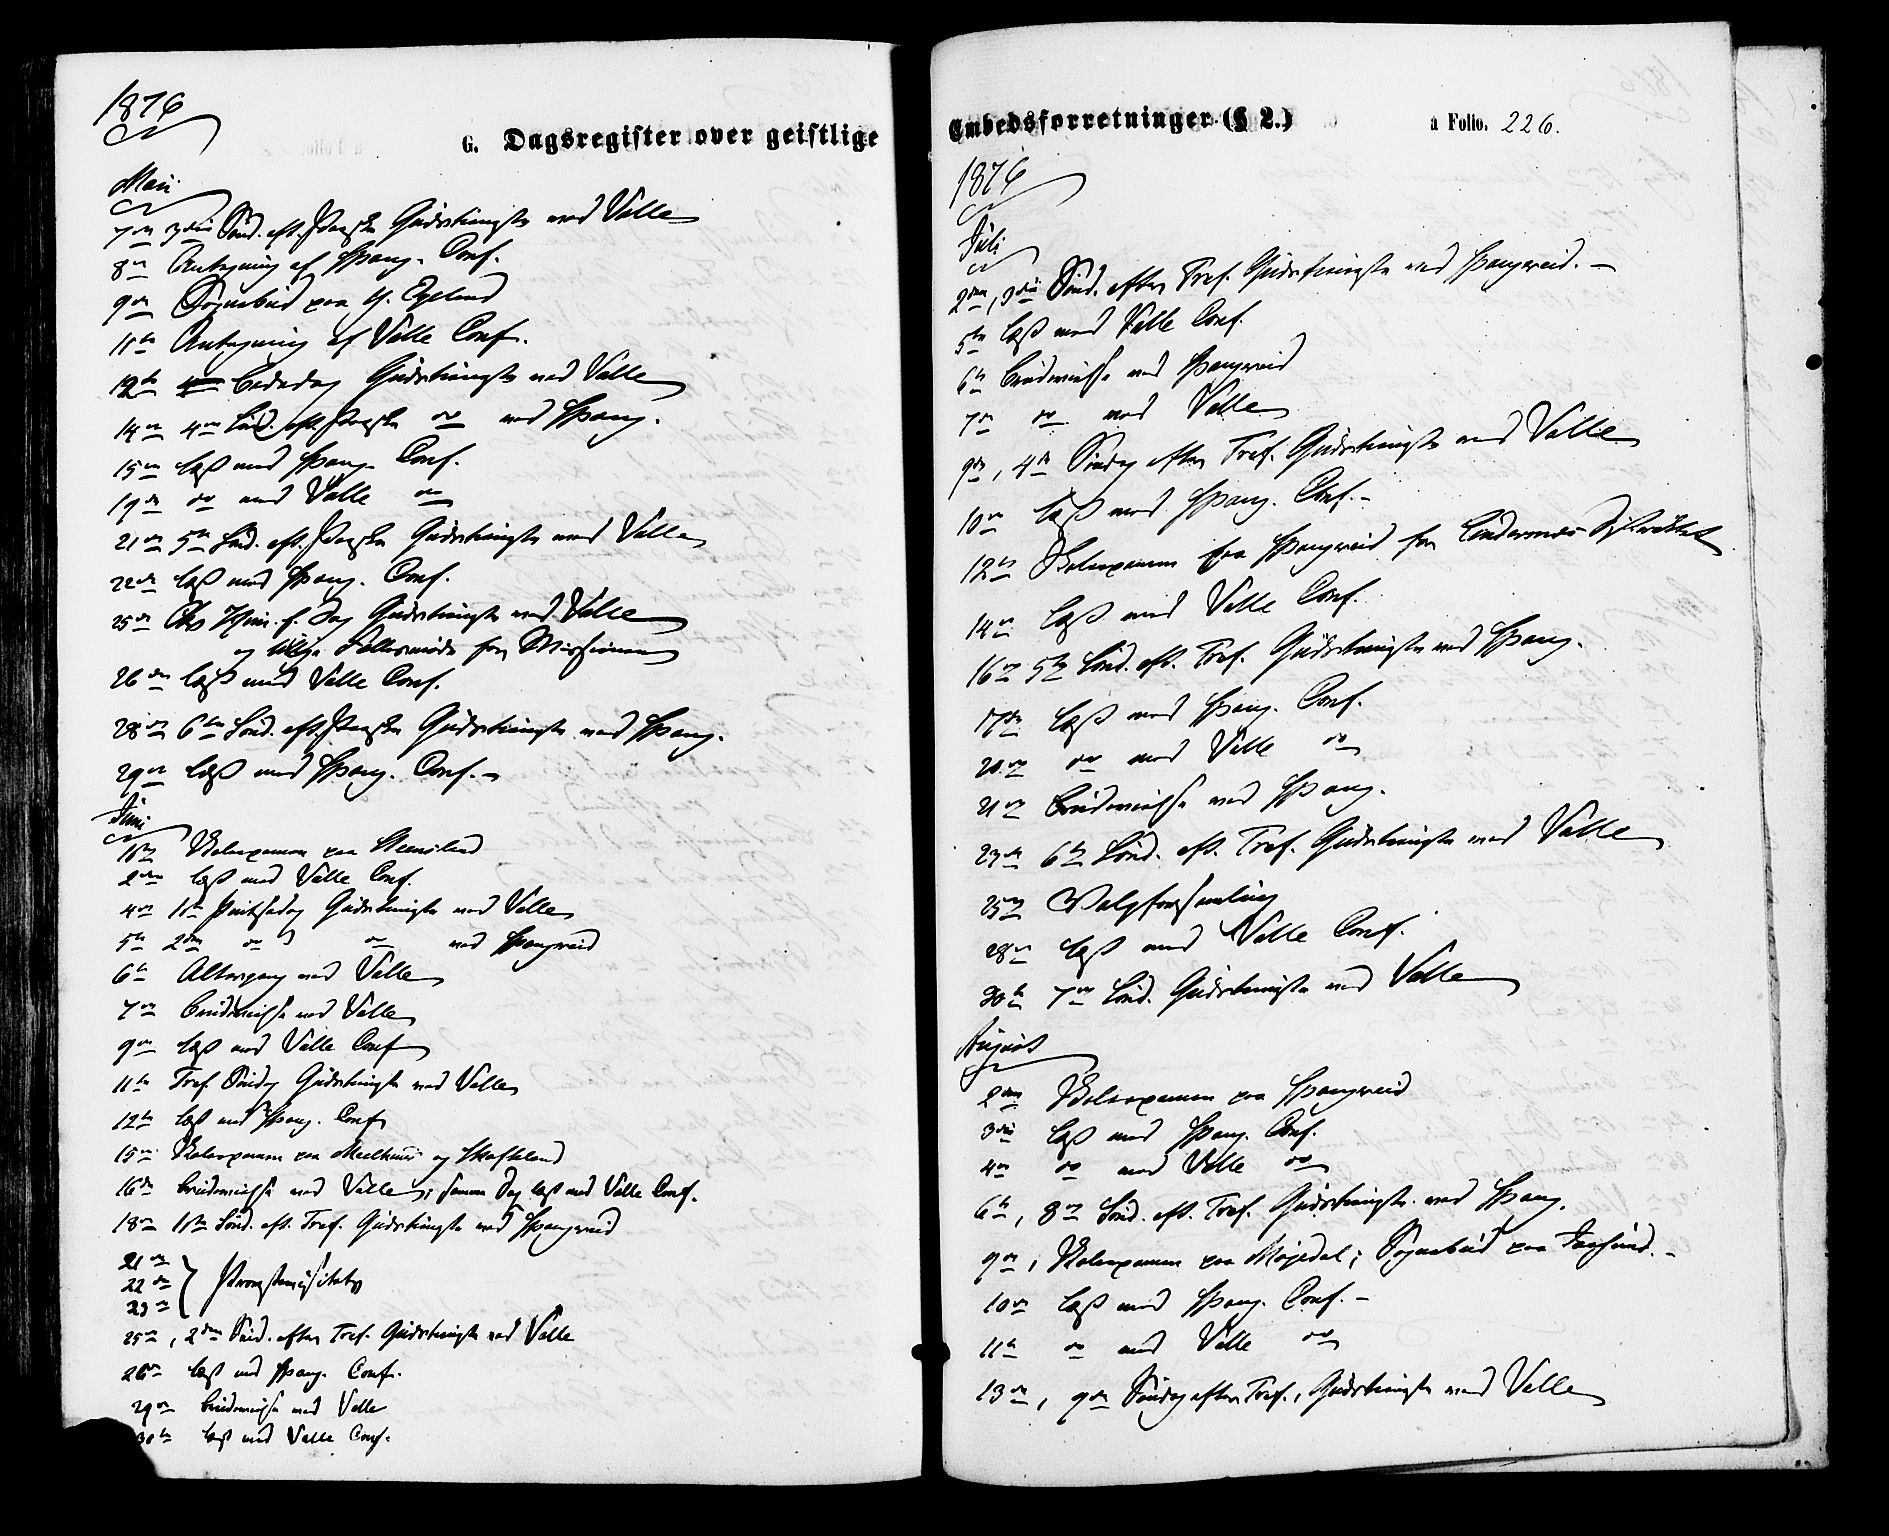 1876
G. Dagsregister over geistlige
Mai
7de 3die Sønd. eft. Paaske Gudstjeneste ved Valle
8de Antegning af Spang. Conf.
9de Sognebud paa Y. Egeland
11te Antegning af Valle Conf.
12te Bededag Gudstjeneste ved Valle
14de 4de Sønd. eft. Paaske do ved Spang.
15de læst med Spang. Conf.
19de do med Valle do
21de 5te Sønd. eft. Paaske Gudstjeneste ved Valle
22de læst med Spang. Conf.
25de Chr. Himf. Dag Gudstjeneste ved Valle
og Fællesmøde for Missionen
26de læst med Valle Conf.
28de 6te Sønd. eft. Paaske Gudstjeneste ved Spang.
29de læst med Spang. Conf. –
Juni
1ste Skolexamen paa
2den læst med Valle Conf.
4de 1ste Pintsedag Gudstjeneste ved Valle
5te 2den do do ved Spangereid
6te Altergang ved Valle
7de Brudevielse ved Valle
9de læst med Valle Conf
11te Tref. Søndag Gudstjeneste ved Valle
12te læst med Spang. Conf
15de Skolexamen paa og
16de Brudevielse ved Valle; samme Dag læst med Valle Conf.
18de 1ste Sønd. eft. Tref. Gudstjeneste ved Spangereid
21de
22de } Provstevisitats
23de
25de, 2den Sønd. efter Tref. Gudstjeneste ved Valle
26de læst med Spang. Conf.
29de Brudevielse ved Valle
30te læst med Valle Conf.
Embedsforretninger (§ 2.)
a Folio. 226.
1876
Juli
2den, 3die Sønd. efter Tref. Gudstjeneste ved Spangereid. –
5te læst med Valle Conf.
6te Brudevielse ved Spangereid
7de do ved Valle
9de, 4de Søndag efter Tref. Gudstjeneste ved Valle
10de læst med Spang. Conf. –
12te Skolexamen paa Spangereid for Lindesnæs Distriktet
14de læst med Valle Conf.
16de 5te Sønd. eft. Tref. Gudstjeneste ved Spang.
17de læst med Spang. Conf.
20de do med Valle do
21de Brudevielse ved Spang.
23de 6te Sønd. eft. Tref. Gudstjeneste ved Valle
25de Valgforsamling
28de læst med Valle Conf.
30te 7de Sønd. Gudstjeneste ved Valle
August
2den Skolexamen paa Spangereid
3die læst med Spang. Conf.
4de do med Valle do
6te, 8de Sønd. eft. Tref. Gudstjeneste ved Spang.
9de, Skolexamen paa ; Sognebud paa
10de læst med Spang. Conf. –
11te do med Valle do
13de, 9de Søndag efter Tref., Gudstjeneste ved Valle